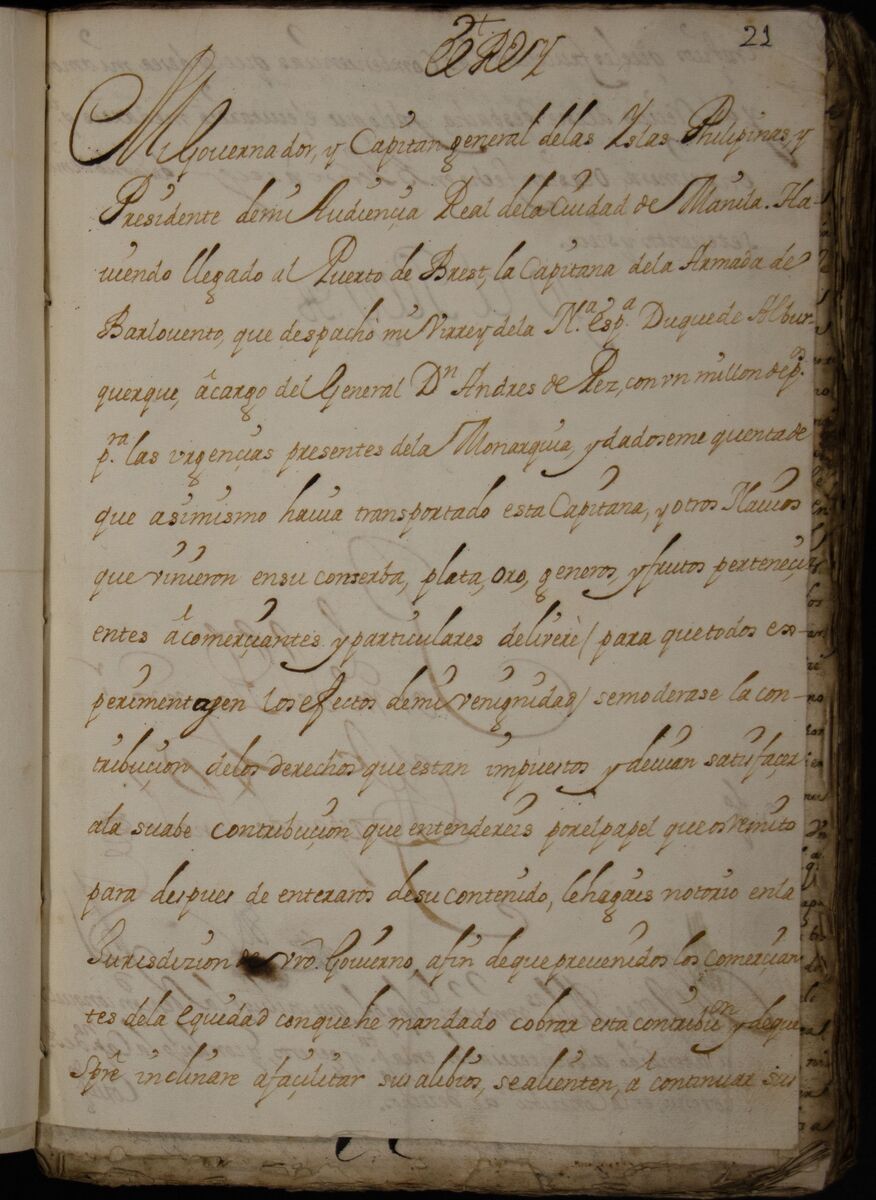 21
El Rey
Mi Governador, y Capitan general delas Yslas Philipinas, y
Presidente demi Audiençia Real dela Ciudad de Manila. Ha-
viendo llegado al Puerto de Brest, la Capitana dela Armada de
Barlovento, que despachò mi Virrey dela N.ª esp.ª Duque de Albur-
querque, â cargo del General Dn Andres de Pez, con vn millon de p.os
p.ra las vrgençias presentes dela Monarquia, y dadoseme quenta de
que asimismo havia transportado esta Capitana, y otros Navios
que vinieron en su conserba, plata, oro, generos, y frutos perteneçi-
entes â comerçiantes y particulares deliverè / para que todos exs-
perimentasen los efectos demi venignidad / se moderase la con-
tribuçion delos derechos que estan impuestos y devian satisfaçer
ala suabe contribuçion que entendereis por el papel que os remito
para despues de enteraros de su contenido, le hagais notorio en la
Jurisdizion de vrō. Govierno, afin de que prevenidos los comerçian
tes dela equidad con que he mandado cobrar esta contribuon y de que
sprē inclinare a façilitar sus alibios, se alienten, â continuar sus